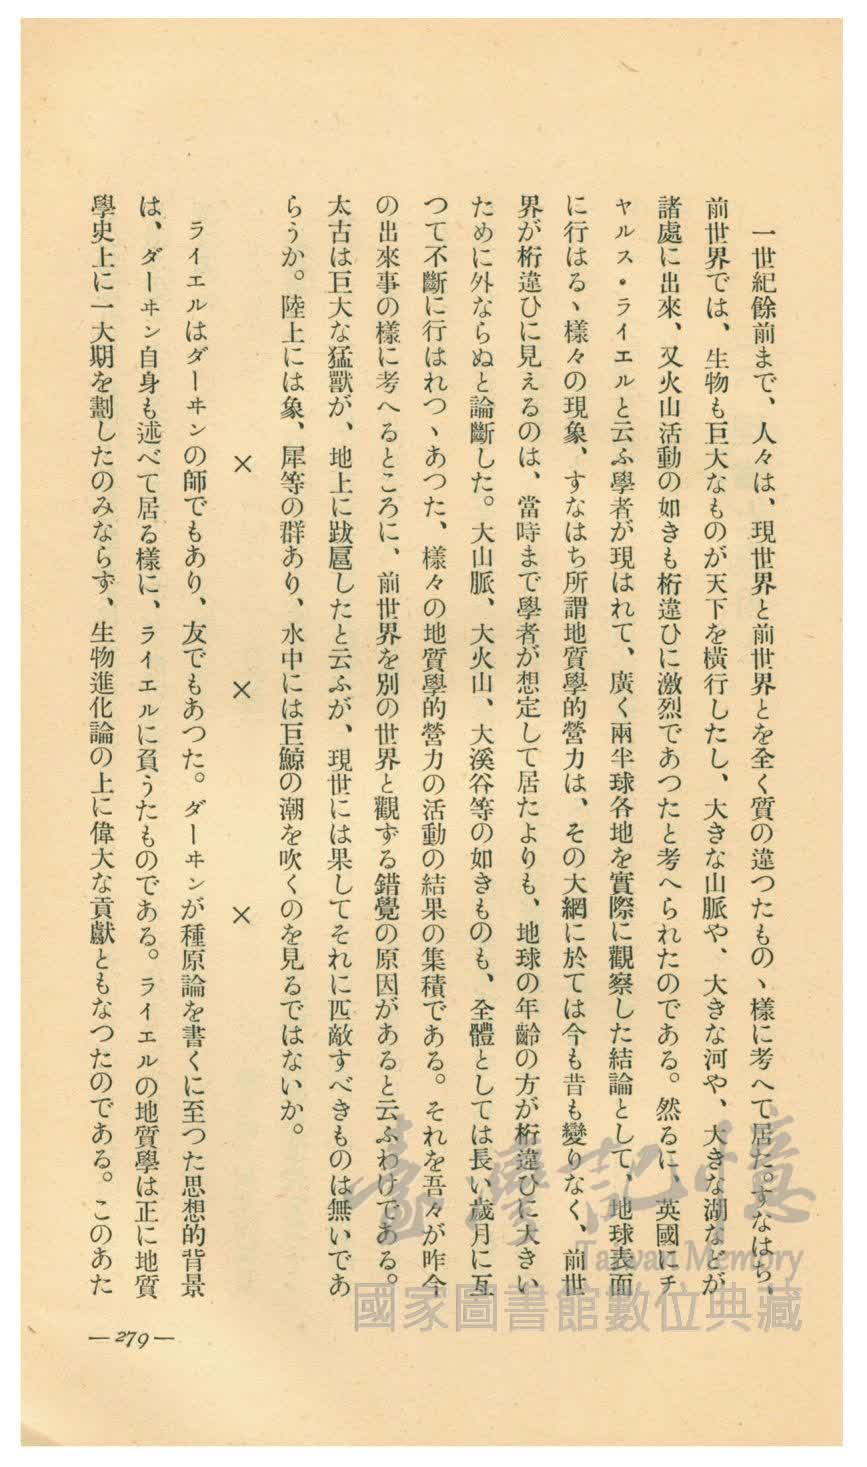 一世紀餘前まで、人々は、現世界と前世界とを全く質の違つたものゝ樣に考へて居た。すなはち、
前世界では、生物も巨大なものが天下を橫行したし、大きな山脈や、大きな河や、大きな湖などが
諸處に出來、又火山活動の如きも桁違ひに激烈であつたと考へられたのである。然るに、英國にチ
ャルス・ライエルと云ふ學者が現はれて、廣く兩半球各地を實際に觀察した結論として、地球表面
に行はるゝ樣々の現象、すなはち所謂地質學的營力は、その大網に於ては今も昔も變りなく、前世
界が桁違ひに見えるのは、當時まで學者が想定して居たよりも、地球の年齡の方が桁違ひに大きい
ために外ならぬと論斷した。大山脈、大火山、大溪谷等の如きものも、全體としては長い歲月に亙
つて不斷に行はれつゝあつた、樣々の地質學的營力の活動の結果の集積である。それを吾々が昨今
の出來事の樣に考へるところに、前世界を別の世界と觀ずる錯覺の原因があると云ふわけである。
太古は巨大な猛獸が、地上に跋扈したと云ふが、現世には果してそれに匹敵すべきものは無いであ
らうか。陸上には象、犀等の群あり、水中には巨鯨の潮を吹くのを見るではないか。
×　×　×
ライエルはダーヰンの師でもあり、友でもあつた。ダーヰンが種原論を書くに至つた思想的背景
は、ダーヰン自身も述べて居る樣に、ライエルに負うたものである。ライエルの地質學は正に地質
學史上に一大期を劃したのみならず、生物進化論の上に偉大な貢獻ともなつたのである。このあた
—279—
臺灣記憶
Taiwan Memory
國家圖書館數位典藏